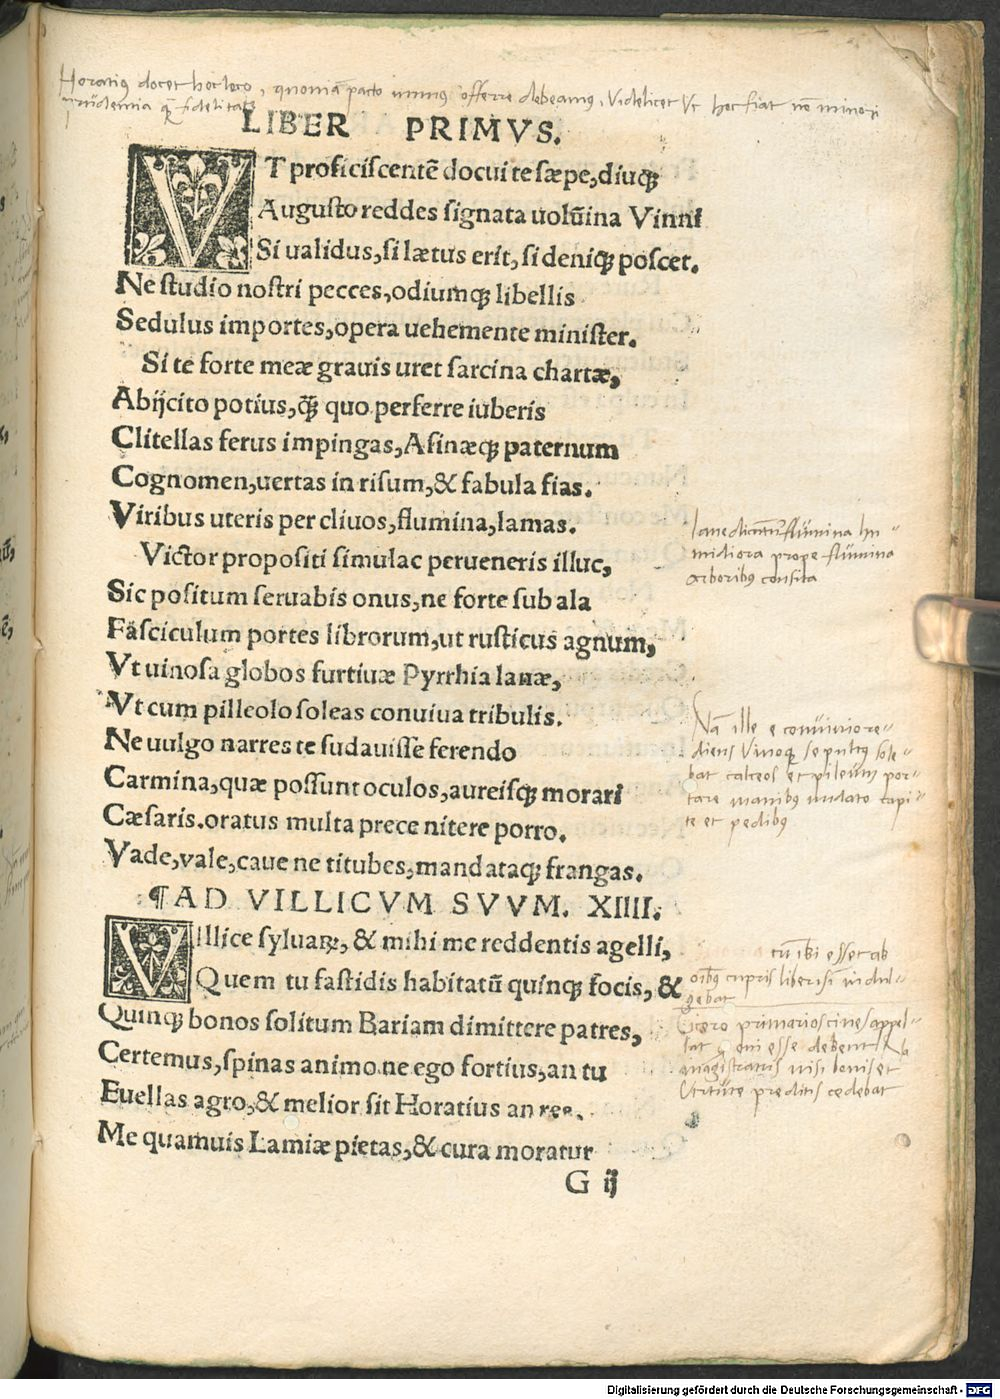 Horatius docet hoc loco, quoniã pacto munus offerre debeamus, Videlicet Vt hoc fiat nõ minori
prudentia quã fidelitate
LIBER PRIMVS.
VT proficiscentẽ docui te sæpe, diuq;
Augusto reddes signata uolũina Vinni
Si ualidus, si lætus erit, si deniq; poscet.
Ne studio nostri pecces, odiumq; libellis
Sedulus importes, opera uehemente minister.
Si te forte meæ grauis uret sarcina chartæ,
Abijcito potius, q̃ quo perferre iuberis
Clitellas ferus impingas, Asinæq; paternum
Cognomen, uertas in risum, & fabula fias.
Viribus uteris per cliuos, flumina, lamas.
Victor propositi simulac perueneris illuc,
Sic positum seruabis onus, ne forte sub ala
Fasciculum portes librorum, ut rusticus agnum,
Vt uinosa globos furtiuæ Pyrrhia lanæ,
Vt cum pilleolo soleas conuiua tribulis.
Ne uulgo narres te sudauisse ferendo
Carmina, quæ possunt oculos, aureisq; morari
Cæsaris. oratus multa prece nitere porro.
Vade, vale, caue ne titubes, mandataq; frangas.
¶AD VILLICVM SVVM. XIIII.
Villice syluaꝝ, & mihi me reddentis agelli,
Quem tu fastidis habitatũ quinq; focis, &
Quinq; bonos solitum Bariam dimittere patres,
Certemus, spinas animo ne ego fortius, an tu
Euellas agro, & melior sit Horatius an res.
Me quamuis Lamiæ pietas, & cura moratur
G ij
flumina hu-
midiora prope flumina
arboribus consita
Nã ille e conuiuio re-
diens Vinoq; sepultus sole-
bat calceos et pileum por-
tare manibus nudato capi-
te et pedibus
cũ ibi esset ab
oĩbus curis liber
gebat
Cicero primarios ciues appel-
lat esse debent
magistratus nisi bonis et
Virtute preditis cedebat
Digitalisierung gefördert durch die Deutsche Forschungsgemeinschaft - DFG